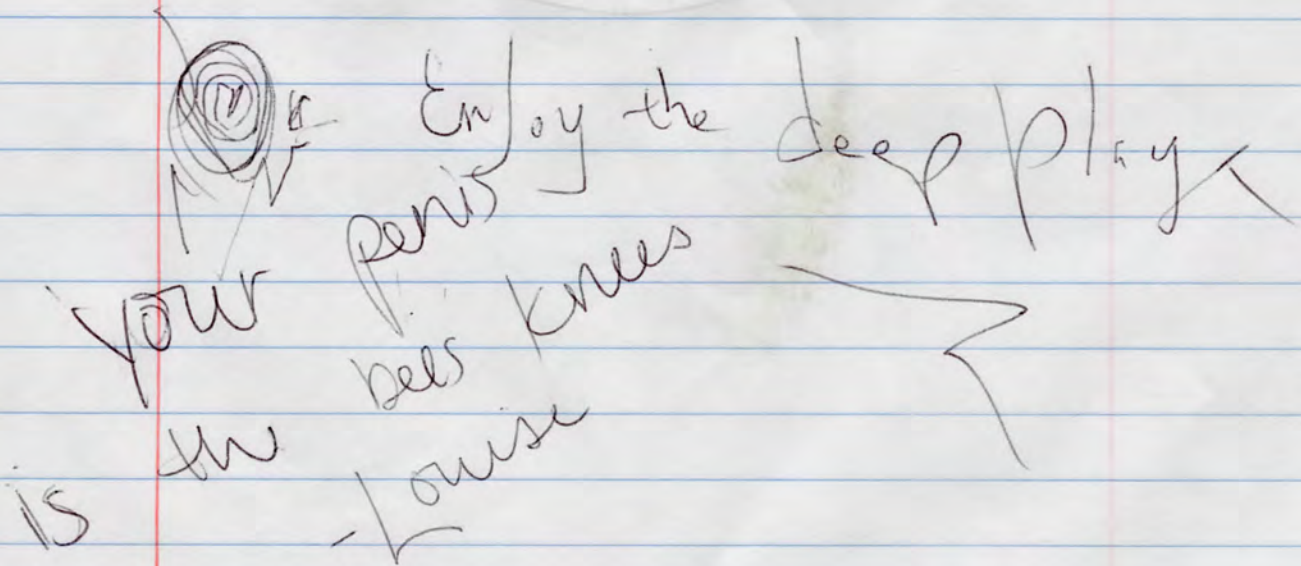 Enjoy the deep play
your penis
is the bees knees
-Louise